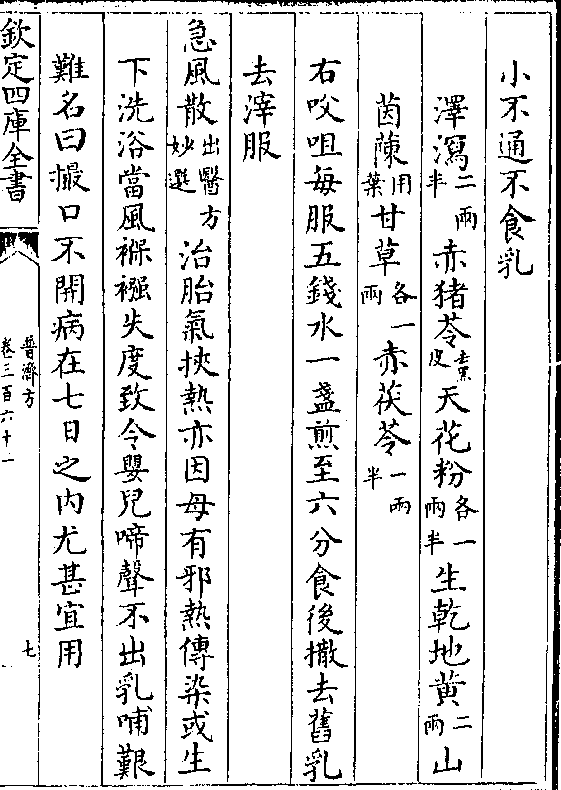 小不通不食乳
澤瀉二兩半赤猪苓去黑皮天花粉各一兩半生乾地黄二兩山
茵蔯用葉甘草各一兩赤茯苓一兩半
右㕮咀每服五錢水一盞煎至六分食後撒去舊乳
去滓服
急風散出醫方妙選治胎氣挾熱亦因母有邪熱傳染或生
下洗浴當風襁褓失度致令嬰兒啼聲不出乳哺艱
難名曰撮口不開病在七日之内尤甚宜用
欽定四庫全書
普濟方
卷三百六十一
七